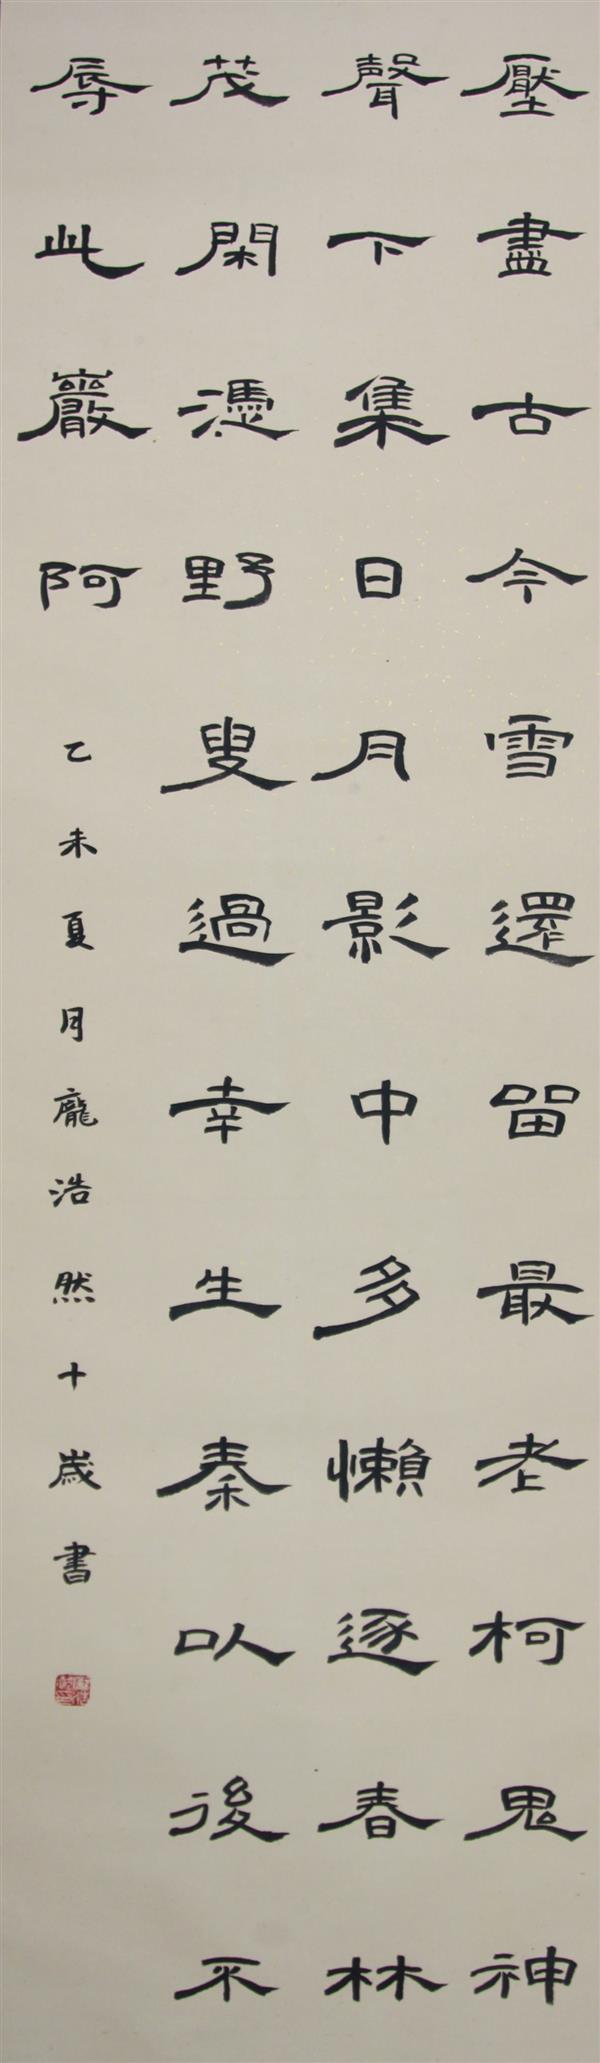 壓盡古今雪還留最老柯鬼神
聲下集日月影中多懶逐春林
茂閑憑野叟過幸生秦以後不
辱此巖阿
乙未夏月龐浩然十歲書